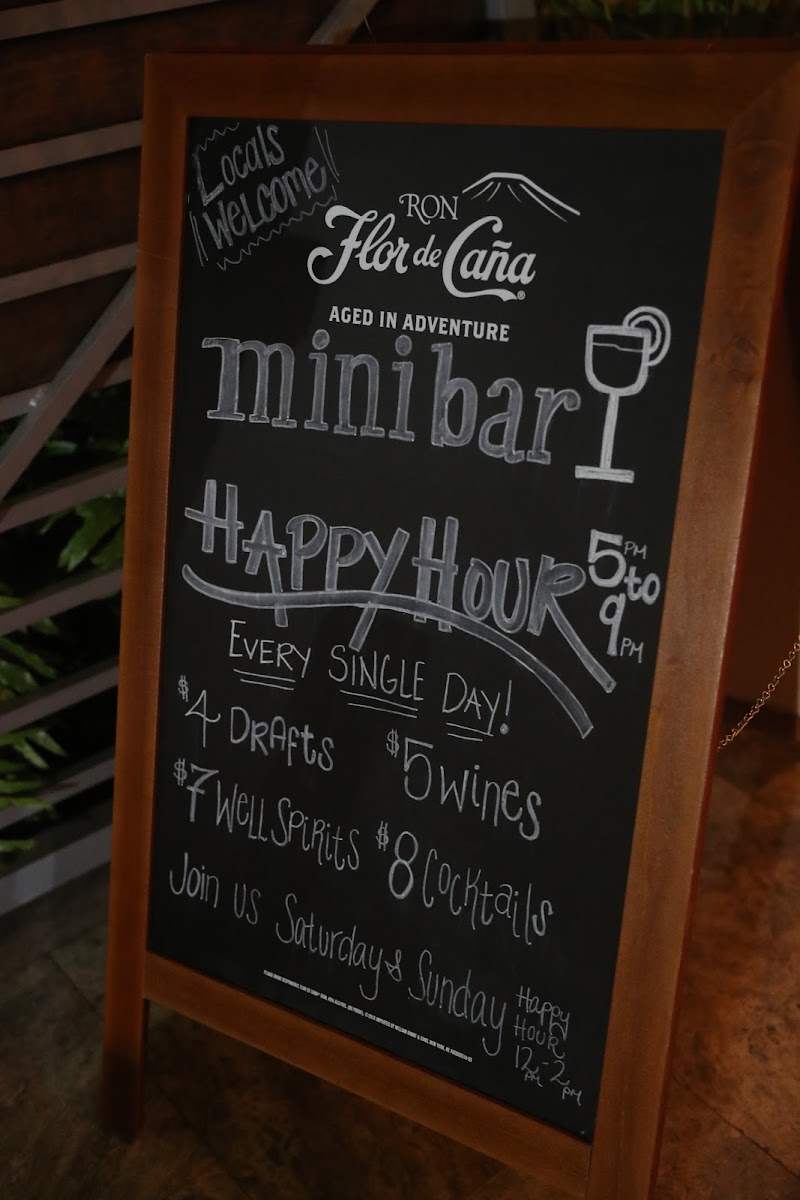 Locals
Welcome
RON
Flor de Caña®
AGED IN ADVENTURE
minibar
HAPPY HOUR
5PM
to
9PM
EVERY SINGLE DAY!
$4 DRAFTS
$5 wines
$7 WELL SPIRITS
$8 Cocktails
Join us Saturday & Sunday
Happy
HOUR
12PM - 2PM